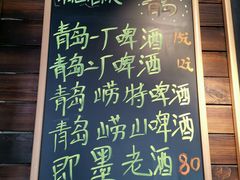 青岛
青岛一厂啤酒 15元
青岛二厂啤酒 12元
青岛崂特啤酒
青岛崂山啤酒
即墨老酒 80